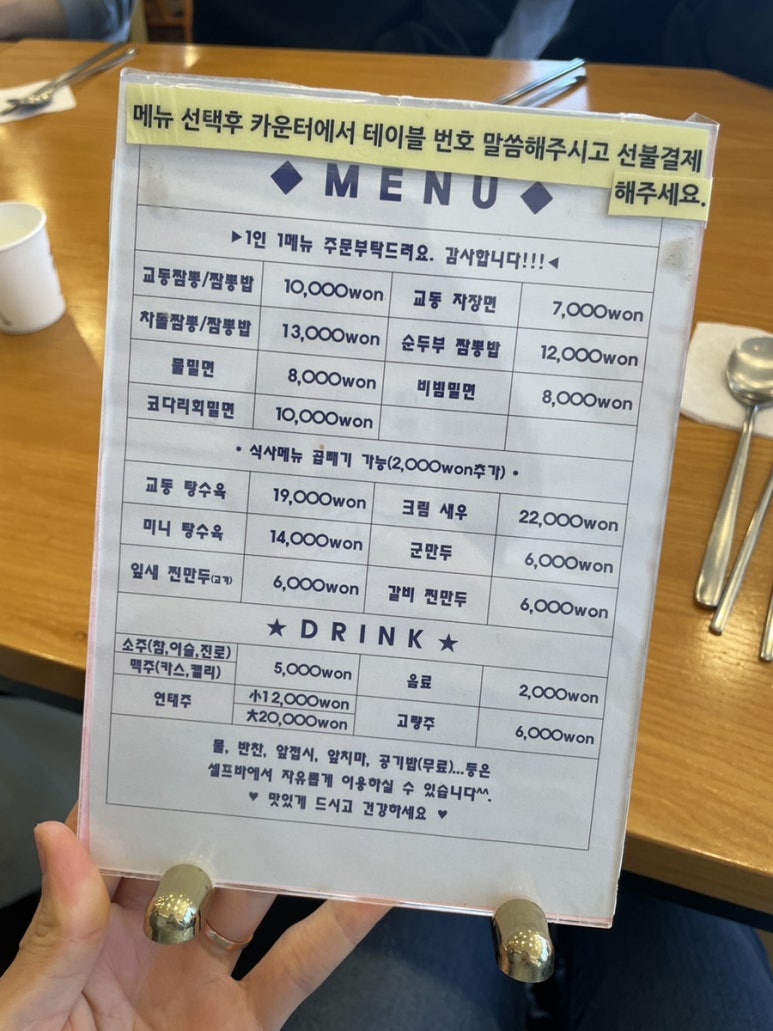 메뉴 선택후 카운터에서 테이블 번호 말씀해주시고 선불결제
해주세요.
◆ MENU ◆
▶1인 1메뉴 주문부탁드려요. 감사합니다!!!◀
교동짬뽕/짬뽕밥 10,000won 교동 자장면 7,000won
차돌짬뽕/짬뽕밥 13,000won 순두부 짬뽕밥 12,000won
물밀면 8,000won 비빔밀면 8,000won
코다리회밀면 10,000won
• 식사메뉴 곱빼기 가능(2,000won추가) •
교동 탕수육 19,000won 크림 새우 22,000won
미니 탕수육 14,000won 군만두 6,000won
잎새 찐만두(고기) 6,000won 갈비 찐만두 6,000won
★ DRINK ★
소주(참,이슬,진로)
맥주(카스,켈리) 5,000won 음료 2,000won
연태주 小12,000won 고량주 6,000won
大20,000won
물, 반찬, 앞접시, 앞치마, 공기밥(무료)...등은
셀프바에서 자유롭게 이용하실 수 있습니다^^.
♥ 맛있게 드시고 건강하세요 ♥